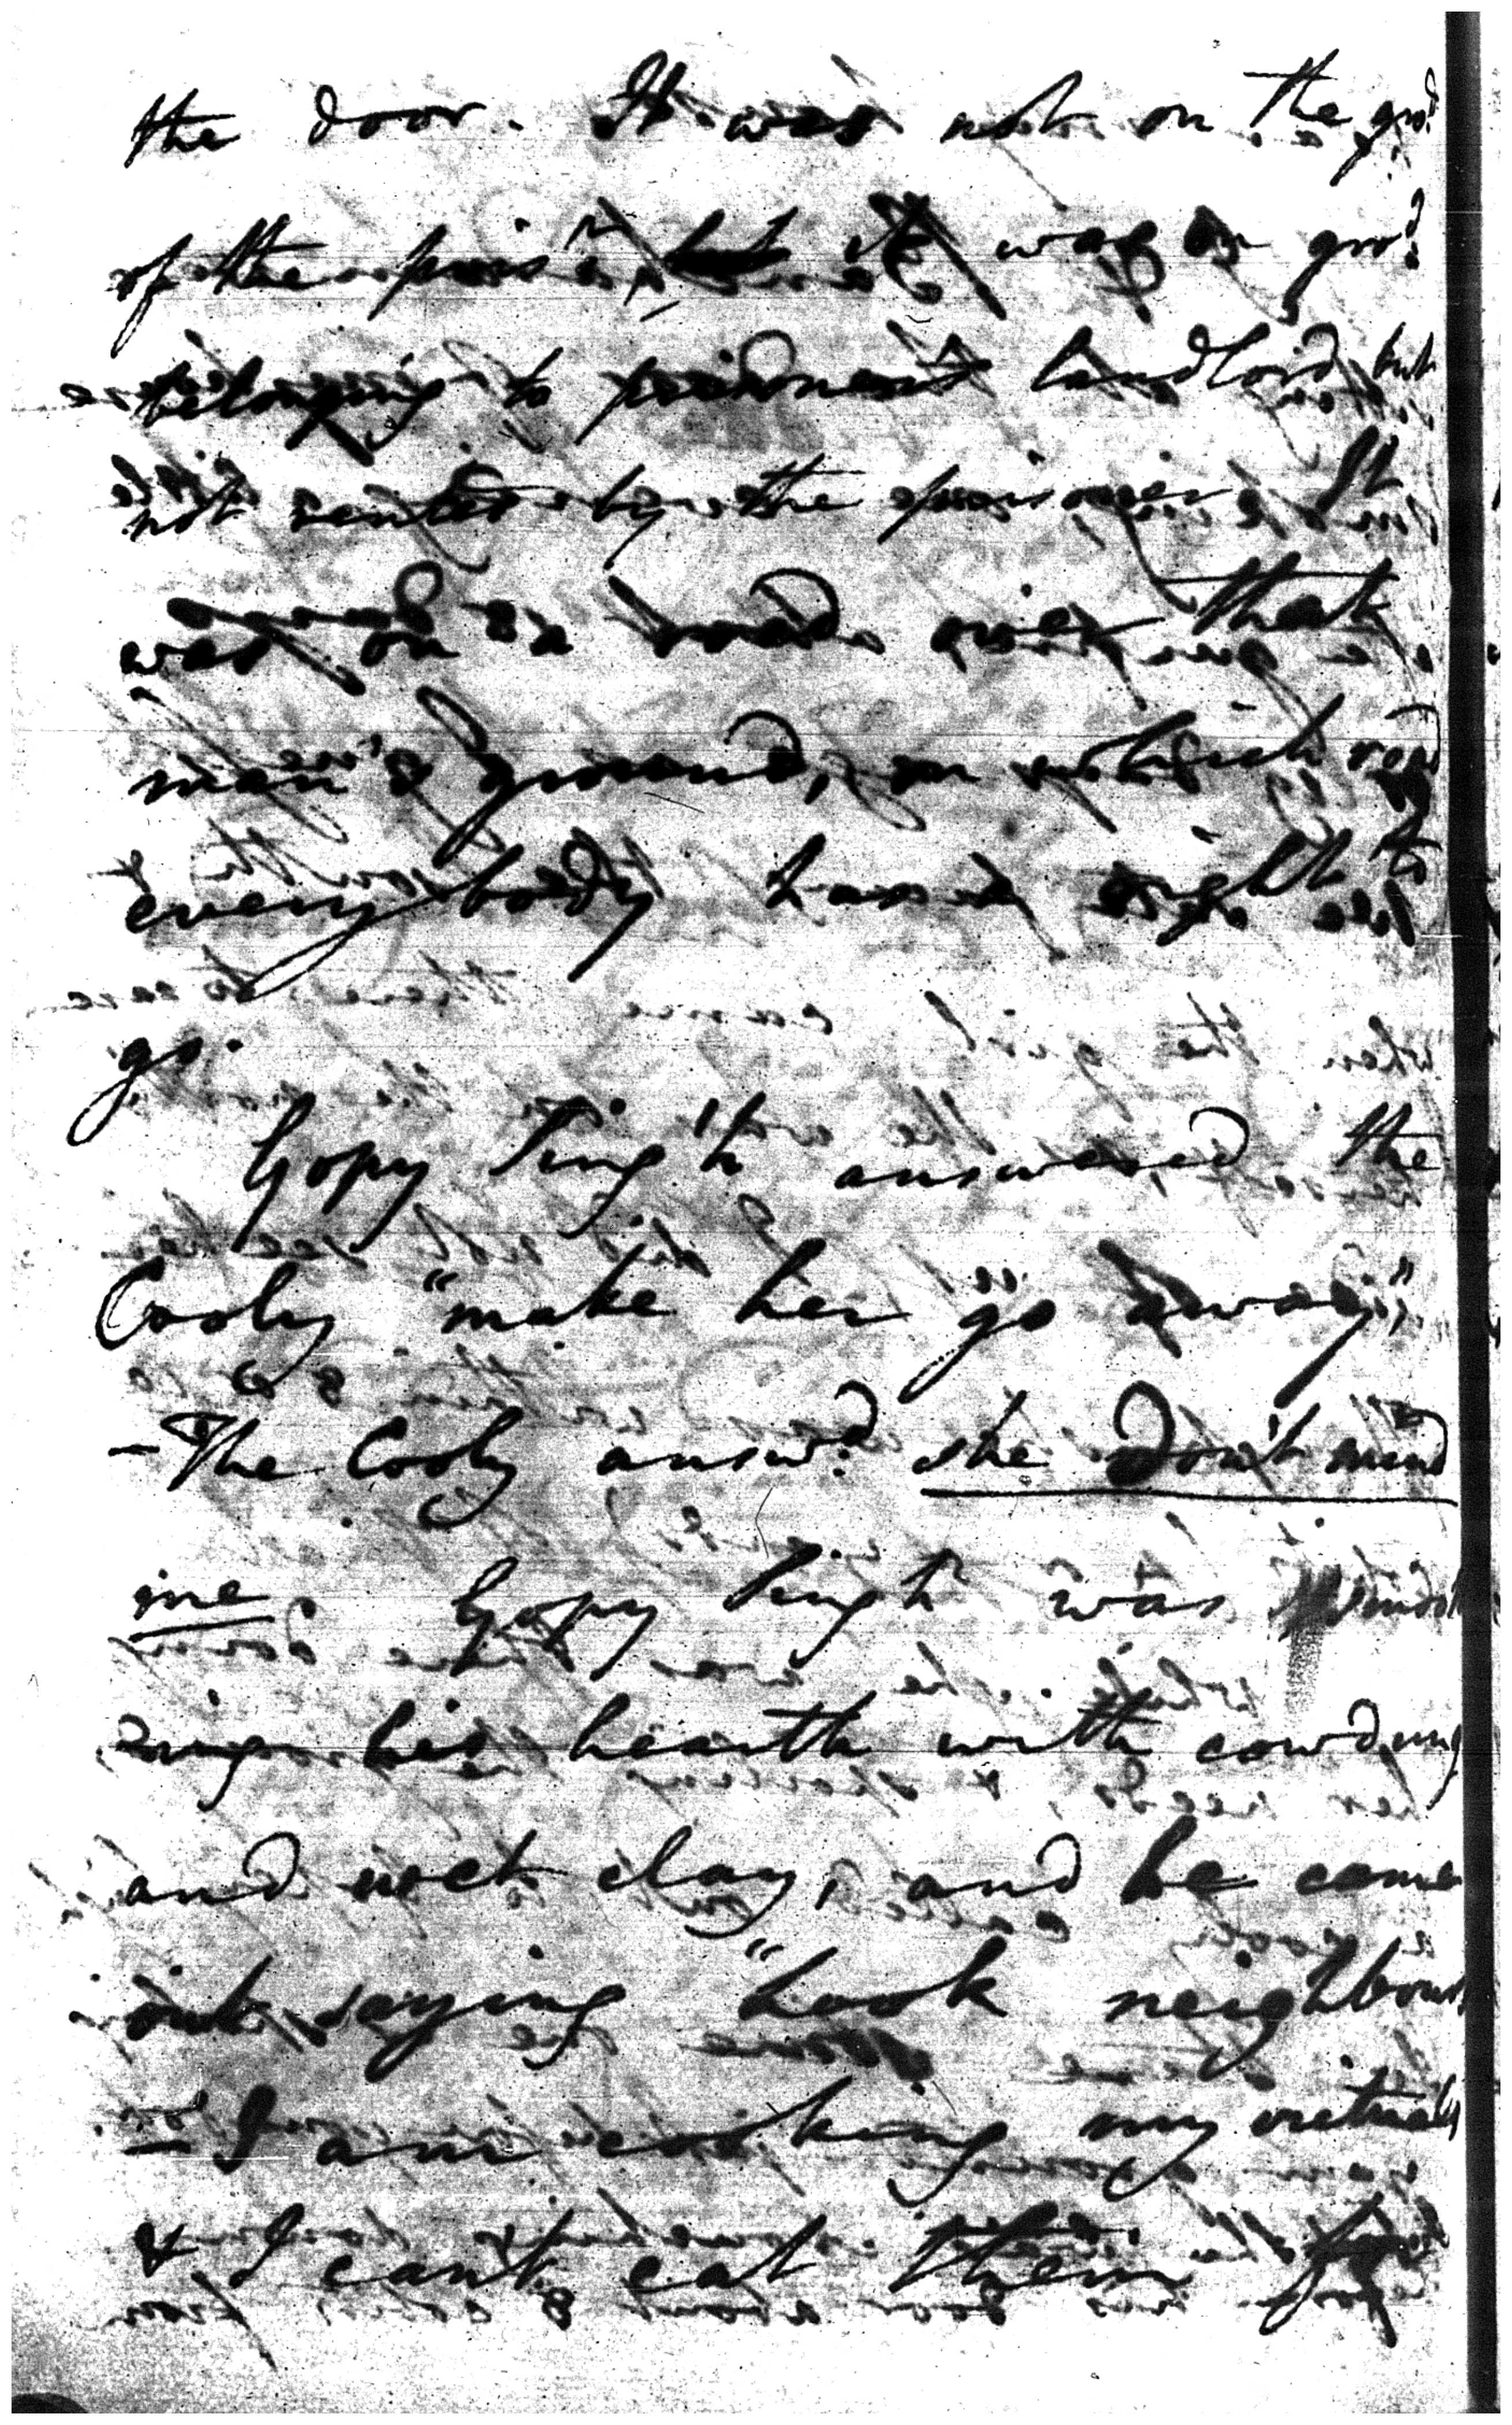 the door. It was not on the gro.d
of the pris.r, but it was on gro.d
belonging to landlord, but
not rented by the prisoner. It
was on a road over that
man's ground, on which road
every body has a right to
go.
Gopy Singh answered, the
Cooly "make her go away",
- The Cooly answ.d she don't mind
me. Gopy Singh was
his hearth with cowdung
and wet clay, and he came
out, saying "Look neighbours
- I am cooking my victuals
& I cant eat them for